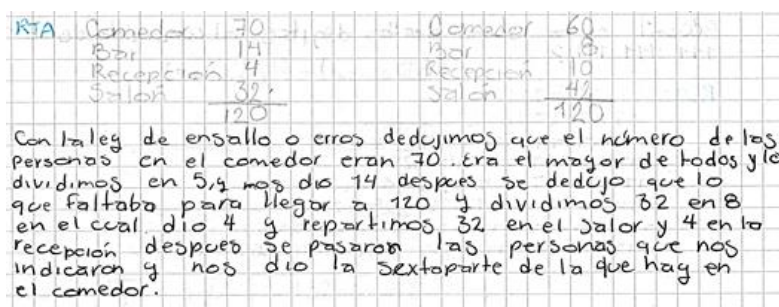 RTA Comedor 70 Comedor 60
Bar 14 Bar 8
Recepción 4 Recepción 10
Salón 32. Salón 42
120 120
Con la ley de ensallo o erros dedujimos que el número de las
personas en el comedor eran 70. era el mayor de todos y lo
dividimos en 5, y nos dio 14 despues se dedujo que lo
que faltaba para llegar a 120 y dividimos 32 en 8
en el cual dio 4 y repartimos 32 en el salor y 4 en la
recepción despues se pasaron las personas que nos
indicaron y nos dio la sextaparte de la que hay en
el comedor.